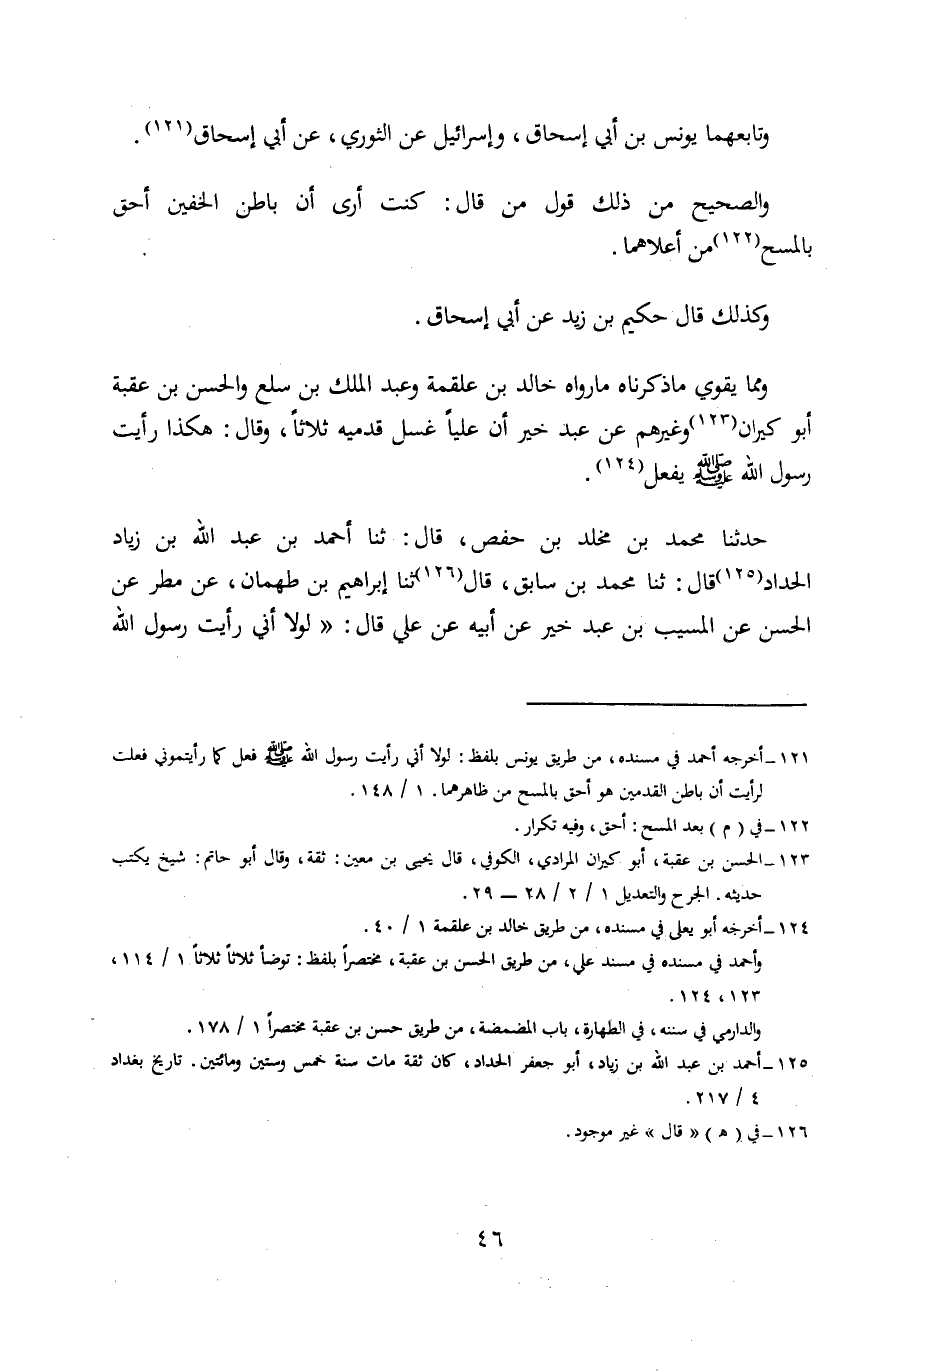 وتابعهما يونس بن أبي إسحاق ، وإسرائيل عن الثوري ، عن أبي إسحاق(١٢١) .
والصحيح من ذلك قول من قال : كنت أرى أن باطن الخفين أحق
بالمسح(١٢٢)من أعلاهما .
وكذلك قال حكيم بن زيد عن أبي إسحاق .
ومما يقوي ماذكرناه مارواه خالد بن علقمة وعبد الملك بن سلع والحسن بن عقبة
أبو كيران(١٢٣)وغيرهم عن عبد خير أن علياً غسل قدميه ثلاثاً ، وقال : هكذا رأيت
رسول الله ﷺ يفعل(١٢٤) .
حدثنا محمد بن مخلد بن حفص ، قال : ثنا أحمد بن عبد الله بن زياد
الحداد(١٢٥)قال : ثنا محمد بن سابق ، قال(١٢٦)ثنا إبراهيم بن طهمان ، عن مطر عن
الحسن عن المسيب بن عبد خير عن أبيه عن علي قال : « لولا أني رأيت رسول الله
١٢١ ـ أخرجه أحمد في مسنده ، من طريق يونس بلفظ : لولا أني رأيت رسول الله ﷺ فعل كما رأيتموني فعلت
لرأيت أن باطن القدمين هو أحق بالمسح من ظاهرهما . ١ / ١٤٨ .
١٢٢ ـ في ( م ) بعد المسح : أحق ، وفيه تكرار .
١٢٣ ـ الحسن بن عقبة ، أبو كيران المرادي ، الكوفي ، قال يحيى بن معين : ثقة ، وقال أبو حاتم : شيخ يكتب
حديثه . الجرح والتعديل ١ / ٢ / ٢٨ ــ ٢٩ .
١٢٤ ـ أخرجه أبو يعلى في مسنده ، من طريق خالد بن علقمة ١ / ٤٠ .
وأحمد في مسنده في مسند علي ، من طريق الحسن بن عقبة ، مختصراً بلفظ : توضأ ثلاثاً ثلاثاً ١ / ١١٤ ،
١٢٣ ، ١٢٤ .
والدارمي في سننه ، في الطهارة ، باب المضمضة ، من طريق حسن بن عقبة مختصراً ١ / ١٧٨ .
١٢٥ ـ أحمد بن عبد الله بن زياد ، أبو جعفر الحداد ، كان ثقة مات سنة خمس وستين ومائتين . تاريخ بغداد
٤ / ٢١٧ .
١٢٦ ـ في ( هـ ) « قال » غير موجود .
٤٦